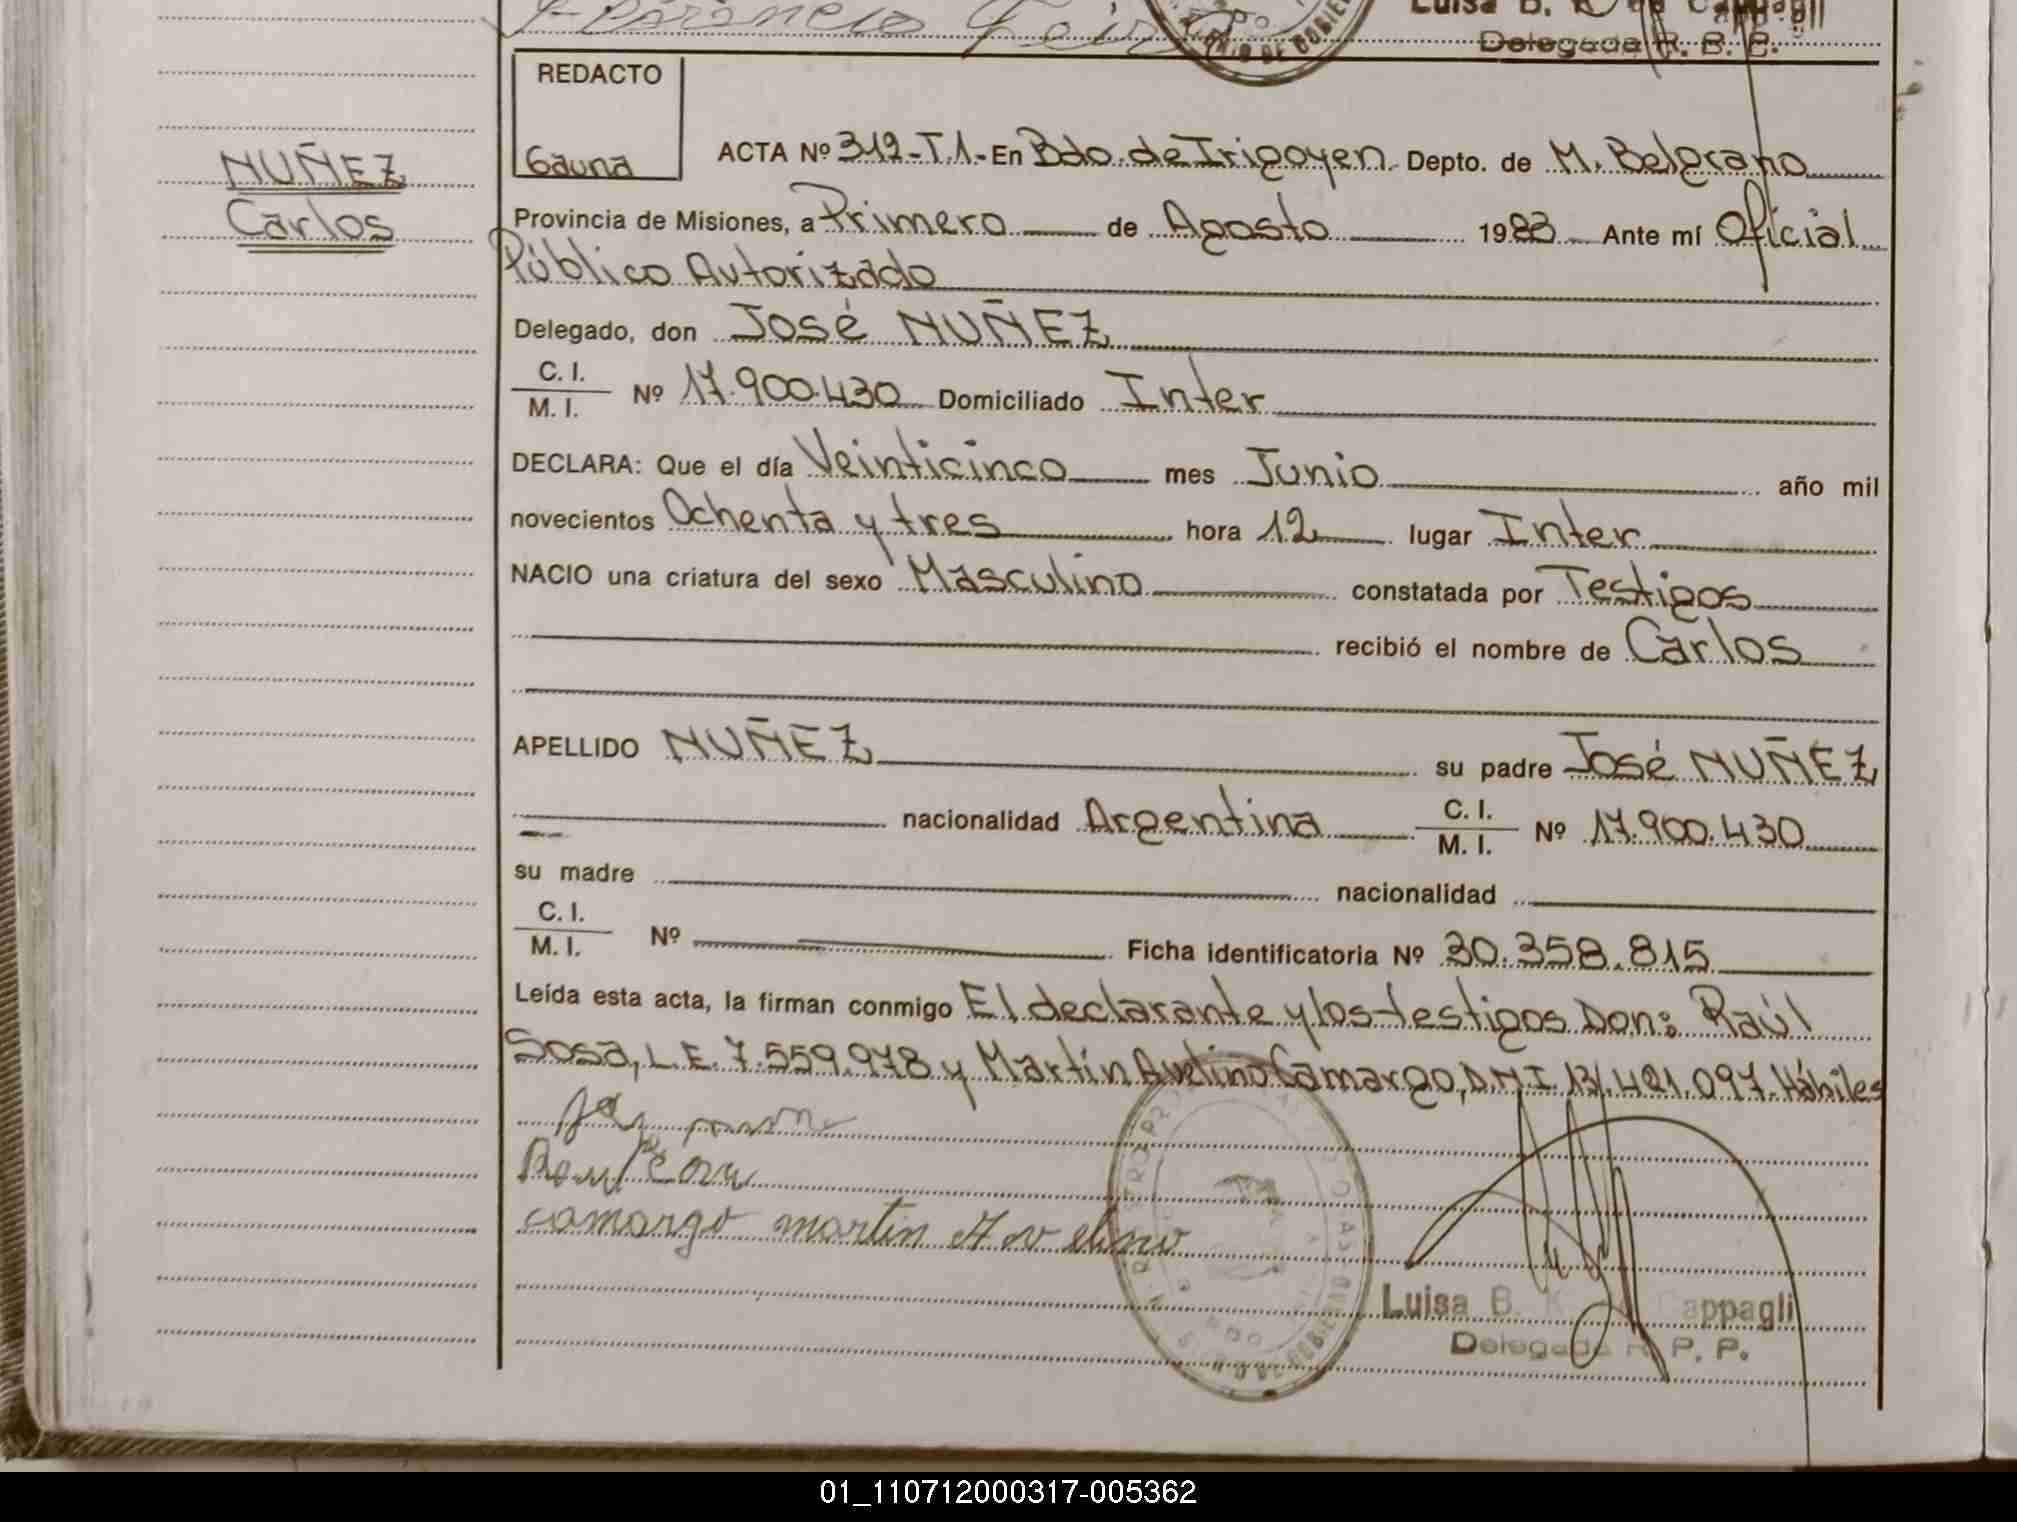 Luisa B.
Delegada R. P. P.
REDACTO
Gauna
NUÑEZ
Carlos
ACTA Nº 312-T.1.- En Bdo. de Irigoyen. Depto. de M. Belgrano
Provincia de Misiones, a Primero de Agosto 1983 Ante mí Oficial
Público Autorizado
Delegado, don José NUÑEZ
C. I.
M. I. Nº 17.900.430 Domiciliado Inter
DECLARA: Que el día Veinticinco mes Junio año mil
novecientos Ochenta y tres hora 12 lugar Inter
NACIO una criatura del sexo Masculino constatada por Testigos
recibió el nombre de Carlos
APELLIDO NUÑEZ su padre José NUÑEZ
nacionalidad Argentina C. I.
M. I. Nº 17.900.430
su madre nacionalidad
C. I.
M. I. Nº Ficha identificatoria Nº 30.358.815
Leída esta acta, la firman conmigo El declarante y los testigos Don: Raúl
Sosa, L.E. 7.559.978 y Martín Avelino Camargo, D.N.I. 13.421.097. Hábiles
camargo martin Avelino
Luisa B. K. Cappagli
Delegada R. P. P.
01_110712000317-005362